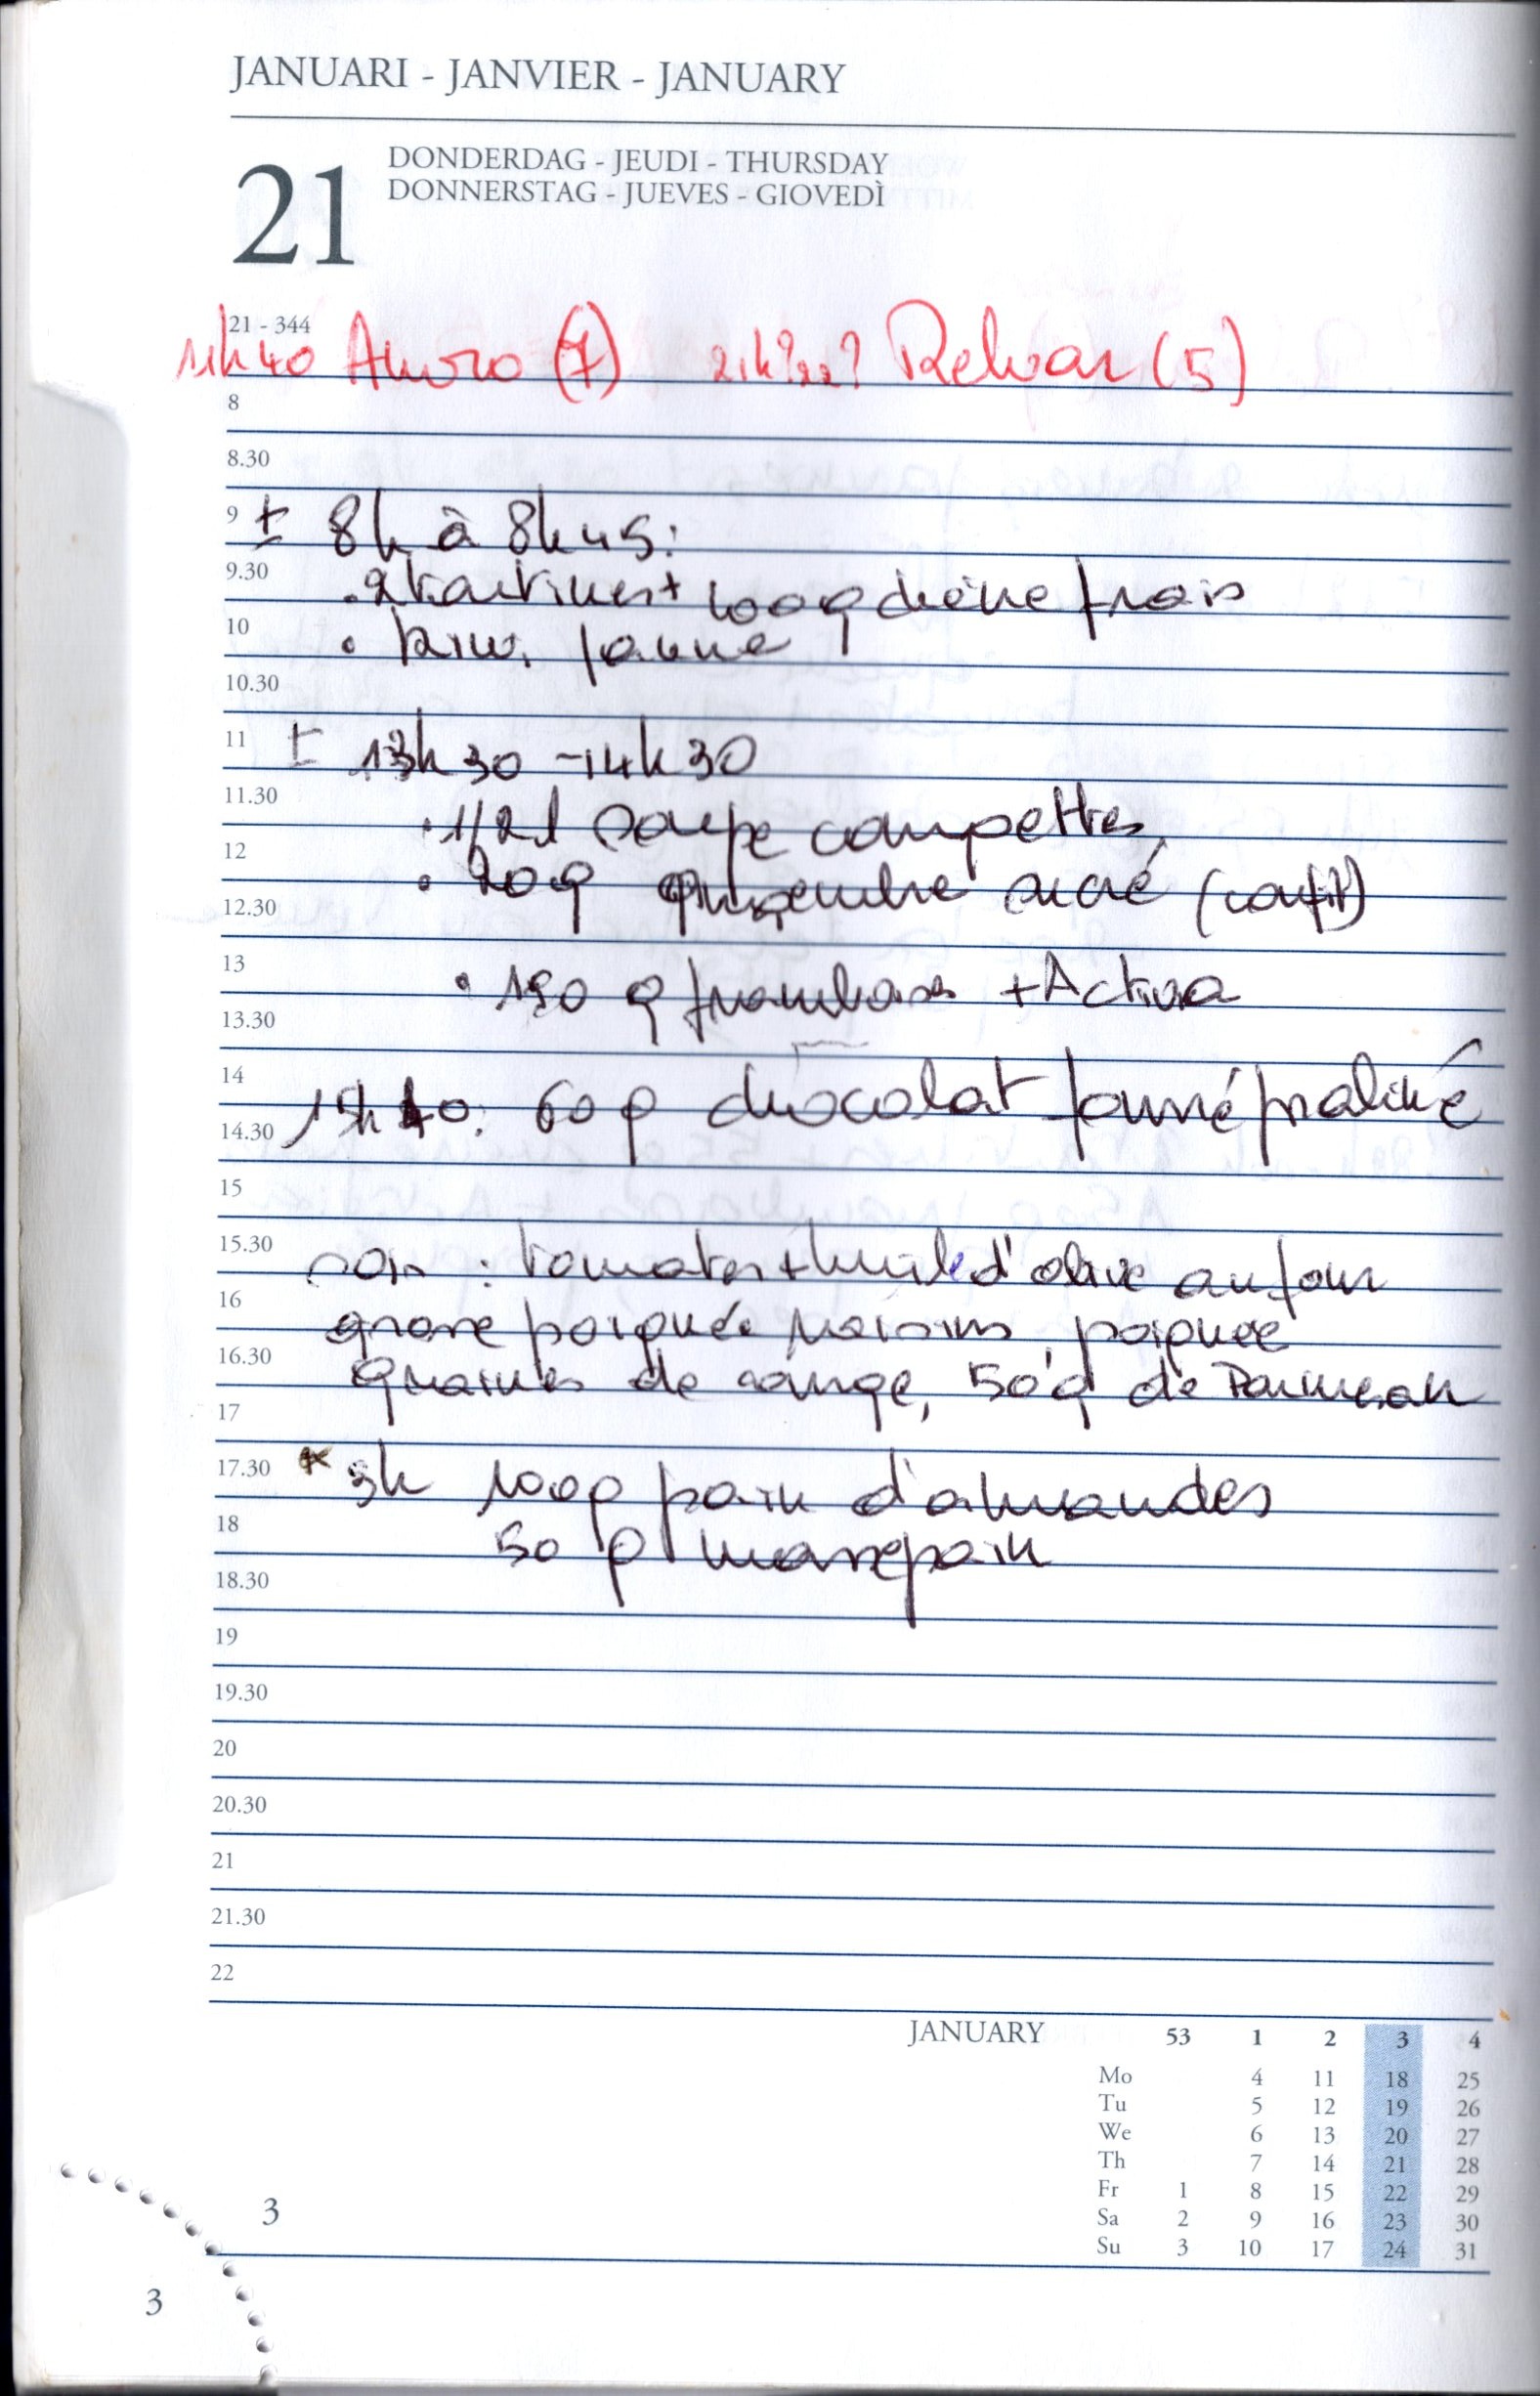 JANUARI - JANVIER - JANUARY
21
DONDERDAG - JEUDI - THURSDAY
DONNERSTAG - JUEVES - GIOVEDÌ
21 - 344
11h40 (7) 21h?22? Relvar (5)
8
8.30
9 ± 8h à 8h45:
9.30 • 2 tartines + 100g chèvre frais
10 • kiwi jaune
10.30
11 ± 13h30 - 14h30
11.30
• 1/2 l soupe courgettes
12
• 20g gingembre sucré (confit)
12.30
13 • 190 g framboises + Activia
13.30
14
15h40: 60g chocolat fourré praliné
14.30
15
15.30 soir : tomates + huile d'olive au four
16
grosse poignée raisins, poignée
16.30
graines de courge, 50g de Parmesan
17
17.30 * 3h 100g pain d'amandes
18
50 g massepain
18.30
19
19.30
20
20.30
21
21.30
22
JANUARY 53 1 2 3 4
Mo 4 11 18 25
Tu 5 12 19 26
We 6 13 20 27
Th 7 14 21 28
Fr 1 8 15 22 29
Sa 2 9 16 23 30
Su 3 10 17 24 31
3
3